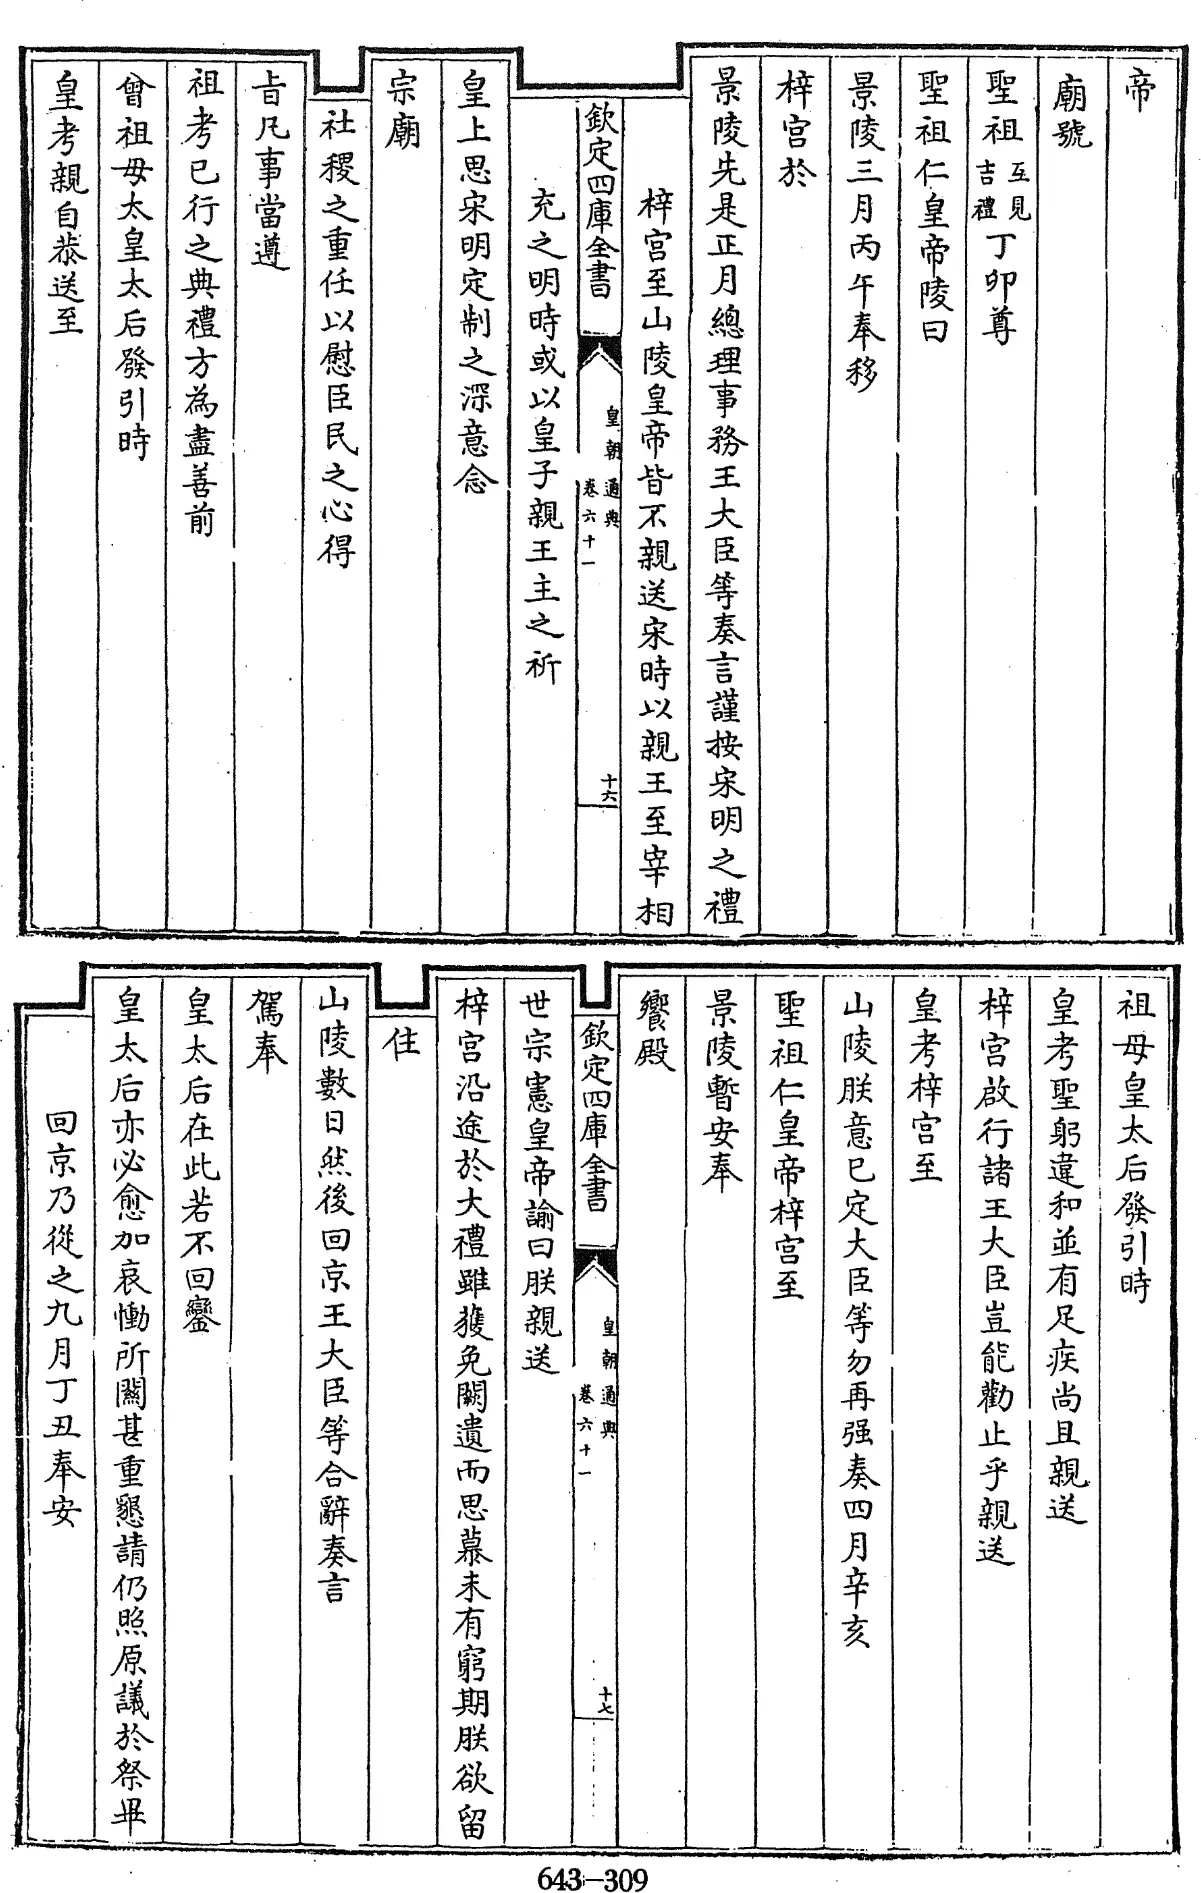 帝
廟號
聖祖互見吉禮丁卯尊
聖祖仁皇帝陵曰
景陵三月丙午奉移
梓宫於
景陵先是正月總理事務王大臣等奏言謹按宋明之禮
梓宫至山陵皇帝皆不親送宋時以親王至宰相
欽定四庫全書
皇朝通典
卷六十一
十六
充之明時或以皇子親王主之祈
皇上思宋明定制之深意念
宗廟
社稷之重任以慰臣民之心得
旨凡事當遵
祖考已行之典禮方為盡善前
曾祖母太皇太后發引時
皇考親自恭送至
祖母皇太后發引時
皇考聖躬違和並有足疾尚且親送
梓宫啟行諸王大臣豈能勸止乎親送
皇考梓宫至
山陵朕意已定大臣等勿再强奏四月辛亥
聖祖仁皇帝梓宫至
景陵暫安奉
饗殿
欽定四庫全書
皇朝通典
卷六十一
十七
世宗憲皇帝諭曰朕親送
梓宫沿途於大禮雖獲免闕遺而思慕未有窮期朕欲留
住
山陵數日然後回京王大臣等合辭奏言
駕奉
皇太后在此若不回鑾
皇太后亦必愈加哀慟所關甚重懇請仍照原議於祭畢
回京乃從之九月丁丑奉安
643-309